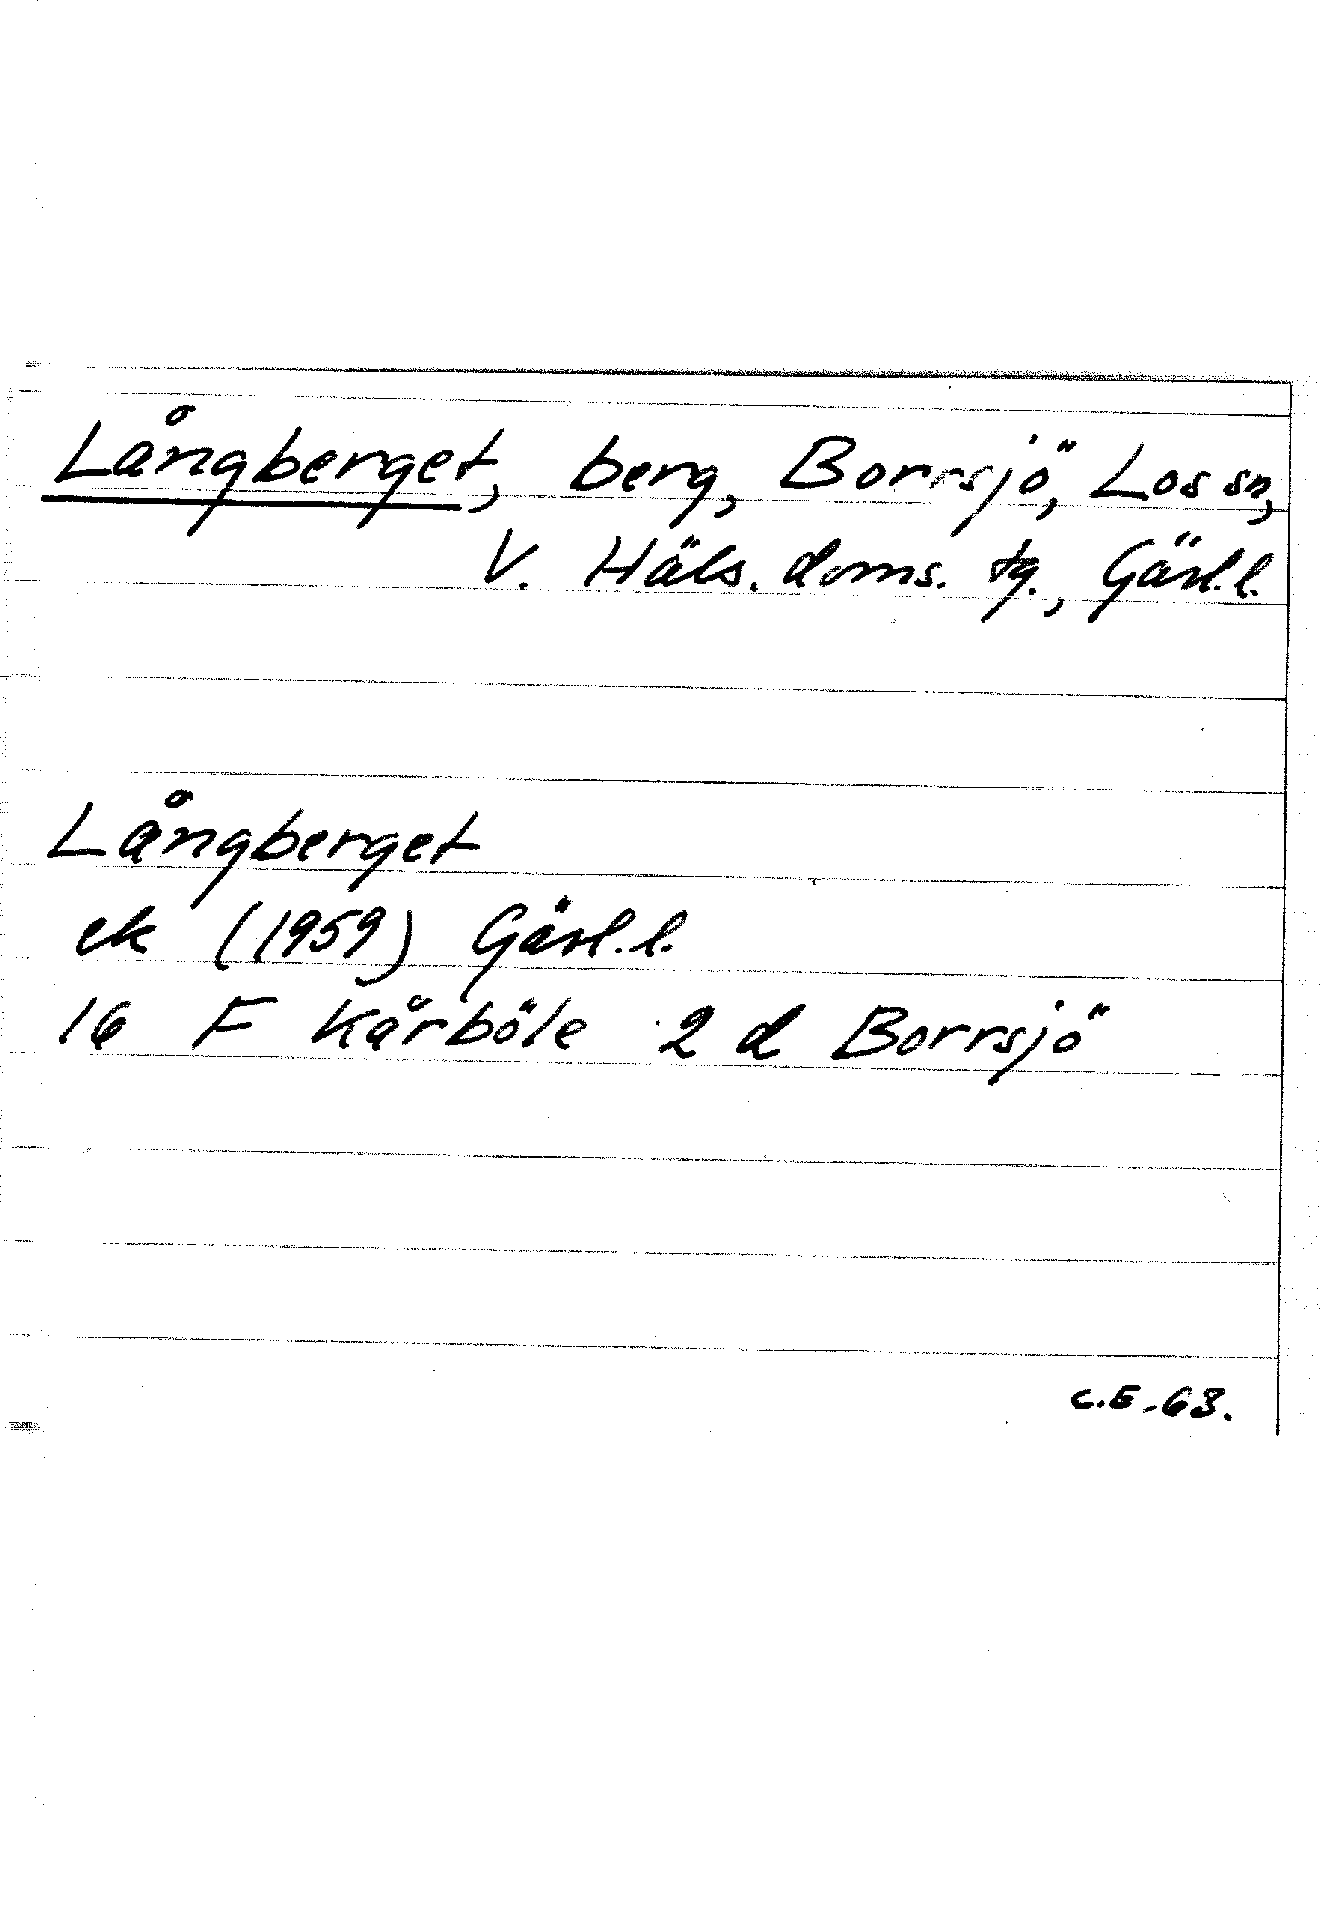 Långberget, berg, Borrsjö, Los sn,
V. Häls. doms. tg., Gävl. l.
Långberget
ek (1959) Gävl. l.
16 F Kårböle 2 d Borrsjö
C.E.-63.